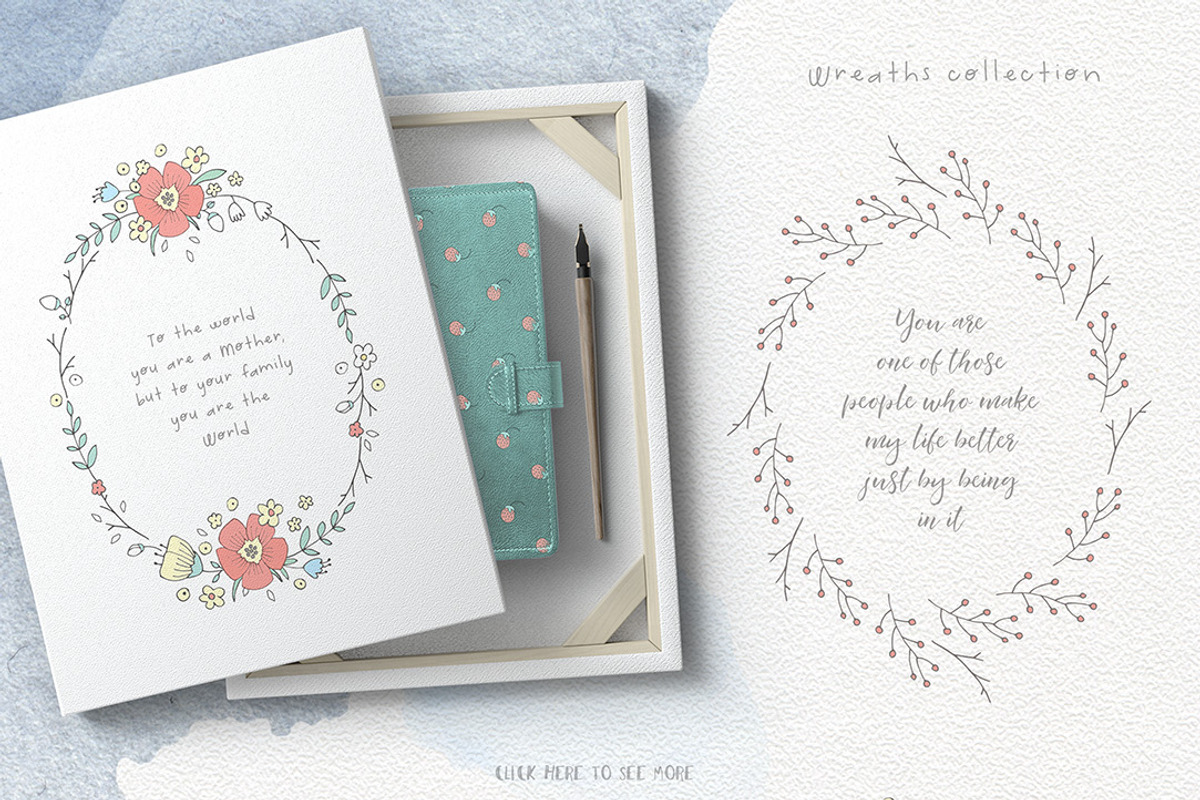 To the world
you are a Mother,
but to your family
you are the
World
Wreaths collection
You are
one of those
people who make
my life better
just by being
in it
CLICK HERE TO SEE MORE